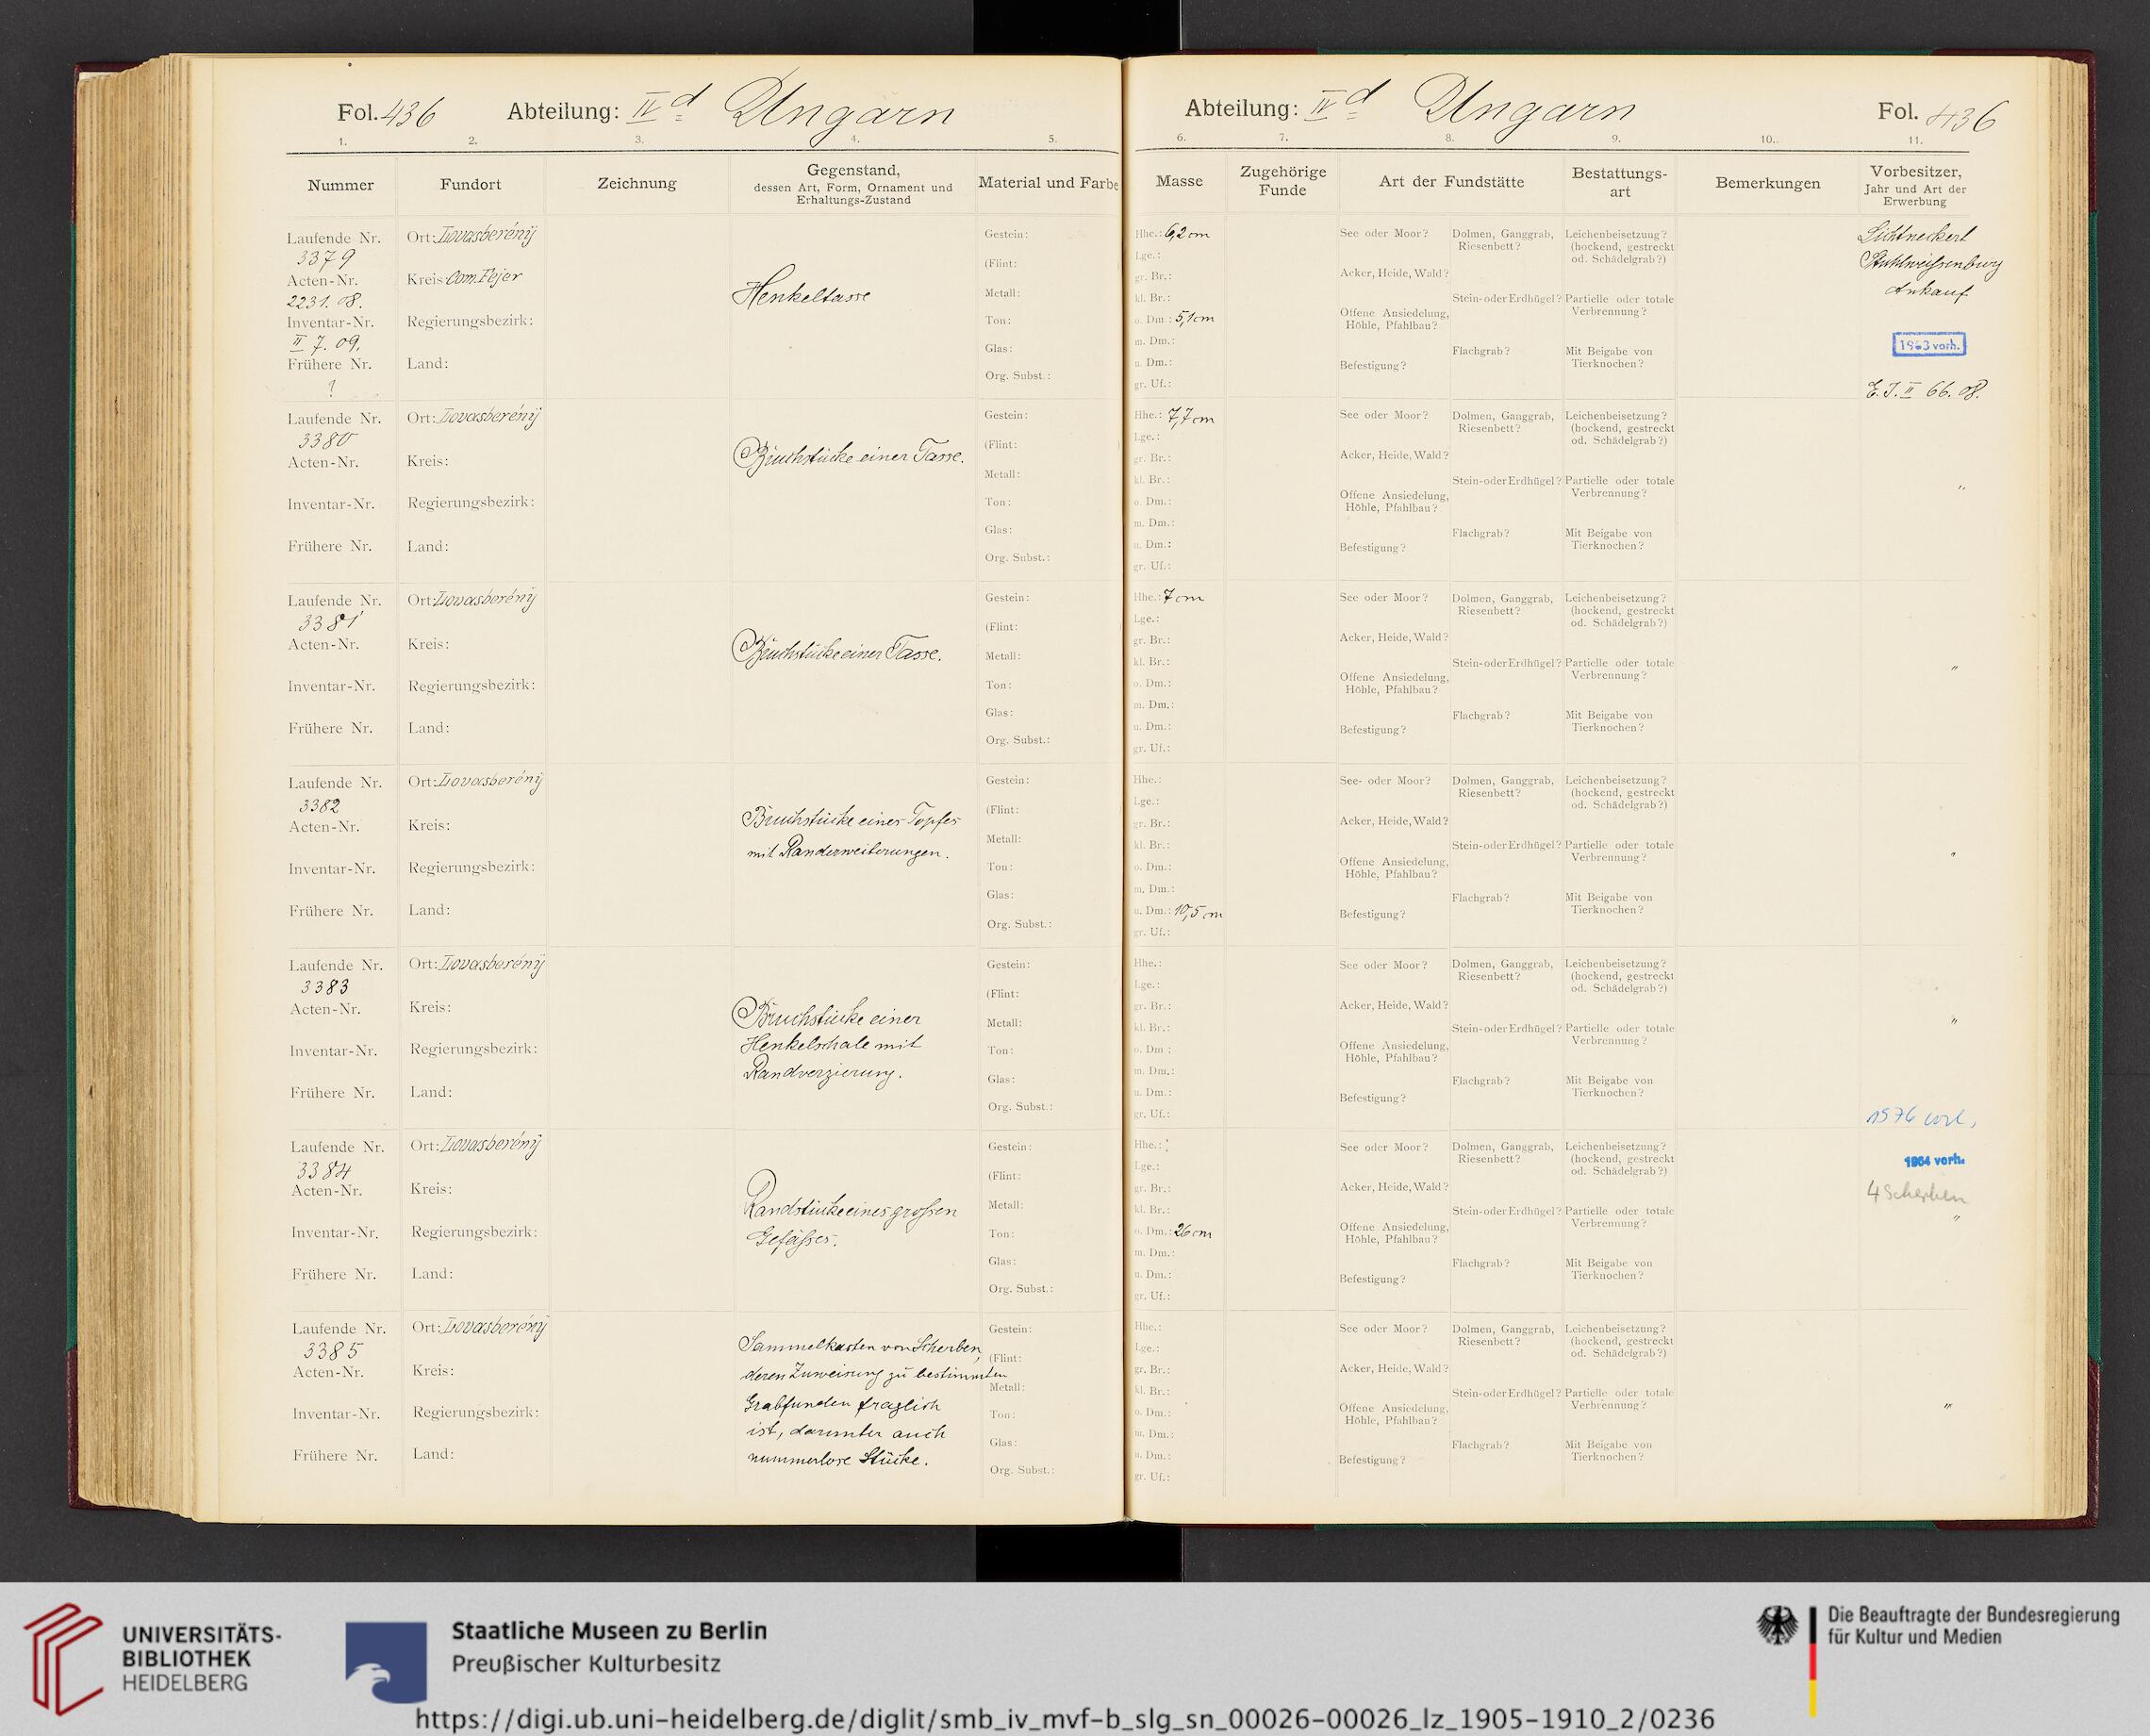 Fol. 436 Abteilung: IV d Ungarn
1. 2. 3. 4. 5.
Nummer Fundort Zeichnung Gegenstand, dessen Art, Form, Ornament und Erhaltungs-Zustand Material und Farbe
Laufende Nr. 3379
Acten-Nr. 2231. 08.
Inventar-Nr. II 7. 09.
Frühere Nr. ?
Ort: Lovasberény
Kreis: Com. Fejer
Regierungsbezirk:
Land:
Henkeltasse
Gestein:
(Flint:
Metall:
Ton:
Glas:
Org. Subst.:
Laufende Nr. 3380
Acten-Nr.
Inventar-Nr.
Frühere Nr.
Ort: Lovasberény
Kreis:
Regierungsbezirk:
Land:
Bruchstücke einer Tasse.
Gestein:
(Flint:
Metall:
Ton:
Glas:
Org. Subst.:
Laufende Nr. 3381
Acten-Nr.
Inventar-Nr.
Frühere Nr.
Ort: Lovasberény
Kreis:
Regierungsbezirk:
Land:
Bruchstücke einer Tasse.
Gestein:
(Flint:
Metall:
Ton:
Glas:
Org. Subst.:
Laufende Nr. 3382
Acten-Nr.
Inventar-Nr.
Frühere Nr.
Ort: Lovasberény
Kreis:
Regierungsbezirk:
Land:
Bruchstücke eines Topfes
mit Randerweiterungen.
Gestein:
(Flint:
Metall:
Ton:
Glas:
Org. Subst.:
Laufende Nr. 3383
Acten-Nr.
Inventar-Nr.
Frühere Nr.
Ort: Lovasberény
Kreis:
Regierungsbezirk:
Land:
Bruchstücke einer
Henkelschale mit
Randverzierung.
Gestein:
(Flint:
Metall:
Ton:
Glas:
Org. Subst.:
Laufende Nr. 3384
Acten-Nr.
Inventar-Nr.
Frühere Nr.
Ort: Lovasberény
Kreis:
Regierungsbezirk:
Land:
Randstücke eines grossen
Gefässes.
Gestein:
(Flint:
Metall:
Ton:
Glas:
Org. Subst.:
Laufende Nr. 3385
Acten-Nr.
Inventar-Nr.
Frühere Nr.
Ort: Lovasberény
Kreis:
Regierungsbezirk:
Land:
Sammelkasten von Scherben,
deren Zuweisung zu bestimmten
Grabfunden fraglich
ist, darunter auch
nummerlose Stücke.
Gestein:
(Flint:
Metall:
Ton:
Glas:
Org. Subst.:
Abteilung: IV d Ungarn Fol. 436
6. 7. 8. 9. 10. 11.
Masse Zugehörige Funde Art der Fundstätte Bestattungs-art Bemerkungen Vorbesitzer, Jahr und Art der Erwerbung
Hhe.: 6,2 cm
Lge.:
gr. Br.:
kl. Br.:
o. Dm.: 5,1 cm
m. Dm.:
u. Dm.:
gr. Uf.:
See oder Moor?
Acker, Heide, Wald?
Offene Ansiedelung, Höhle, Pfahlbau?
Befestigung?
Dolmen, Ganggrab, Riesenbett?
Stein- oder Erdhügel?
Flachgrab?
Leichenbeisetzung? (hockend, gestreckt od. Schädelgrab?)
Partielle oder totale Verbrennung?
Mit Beigabe von Tierknochen?
Lichtneckert
Stuhlweissenburg
Ankauf
1963 vorh.
E. J. II 66. 08.
Hhe.: 7,7 cm
Lge.:
gr. Br.:
kl. Br.:
o. Dm.:
m. Dm.:
u. Dm.:
gr. Uf.:
See oder Moor?
Acker, Heide, Wald?
Offene Ansiedelung, Höhle, Pfahlbau?
Befestigung?
Dolmen, Ganggrab, Riesenbett?
Stein- oder Erdhügel?
Flachgrab?
Leichenbeisetzung? (hockend, gestreckt od. Schädelgrab?)
Partielle oder totale Verbrennung?
Mit Beigabe von Tierknochen?
"
Hhe.: 7 cm
Lge.:
gr. Br.:
kl. Br.:
o. Dm.:
m. Dm.:
u. Dm.:
gr. Uf.:
See oder Moor?
Acker, Heide, Wald?
Offene Ansiedelung, Höhle, Pfahlbau?
Befestigung?
Dolmen, Ganggrab, Riesenbett?
Stein- oder Erdhügel?
Flachgrab?
Leichenbeisetzung? (hockend, gestreckt od. Schädelgrab?)
Partielle oder totale Verbrennung?
Mit Beigabe von Tierknochen?
"
Hhe.:
Lge.:
gr. Br.:
kl. Br.:
o. Dm.:
m. Dm.:
u. Dm.: 10,5 cm
gr. Uf.:
See- oder Moor?
Acker, Heide, Wald?
Offene Ansiedelung, Höhle, Pfahlbau?
Befestigung?
Dolmen, Ganggrab, Riesenbett?
Stein- oder Erdhügel?
Flachgrab?
Leichenbeisetzung? (hockend, gestreckt od. Schädelgrab?)
Partielle oder totale Verbrennung?
Mit Beigabe von Tierknochen?
"
Hhe.:
Lge.:
gr. Br.:
kl. Br.:
o. Dm.:
m. Dm.:
u. Dm.:
gr. Uf.:
See oder Moor?
Acker, Heide, Wald?
Offene Ansiedelung, Höhle, Pfahlbau?
Befestigung?
Dolmen, Ganggrab, Riesenbett?
Stein- oder Erdhügel?
Flachgrab?
Leichenbeisetzung? (hockend, gestreckt od. Schädelgrab?)
Partielle oder totale Verbrennung?
Mit Beigabe von Tierknochen?
"
1976
Hhe.:
Lge.:
gr. Br.:
kl. Br.:
o. Dm.: 26 cm
m. Dm.:
u. Dm.:
gr. Uf.:
See oder Moor?
Acker, Heide, Wald?
Offene Ansiedelung, Höhle, Pfahlbau?
Befestigung?
Dolmen, Ganggrab, Riesenbett?
Stein- oder Erdhügel?
Flachgrab?
Leichenbeisetzung? (hockend, gestreckt od. Schädelgrab?)
Partielle oder totale Verbrennung?
Mit Beigabe von Tierknochen?
1964 vorh.
4 Scherben
"
Hhe.:
Lge.:
gr. Br.:
kl. Br.:
o. Dm.:
m. Dm.:
u. Dm.:
gr. Uf.:
See oder Moor?
Acker, Heide, Wald?
Offene Ansiedelung, Höhle, Pfahlbau?
Befestigung?
Dolmen, Ganggrab, Riesenbett?
Stein- oder Erdhügel?
Flachgrab?
Leichenbeisetzung? (hockend, gestreckt od. Schädelgrab?)
Partielle oder totale Verbrennung?
Mit Beigabe von Tierknochen?
"
UNIVERSITÄTS-
BIBLIOTHEK
HEIDELBERG
Staatliche Museen zu Berlin
Preußischer Kulturbesitz
Die Beauftragte der Bundesregierung
für Kultur und Medien
https://digi.ub.uni-heidelberg.de/diglit/smb_iv_mvf-b_slg_sn_00026-00026_lz_1905-1910_2/0236